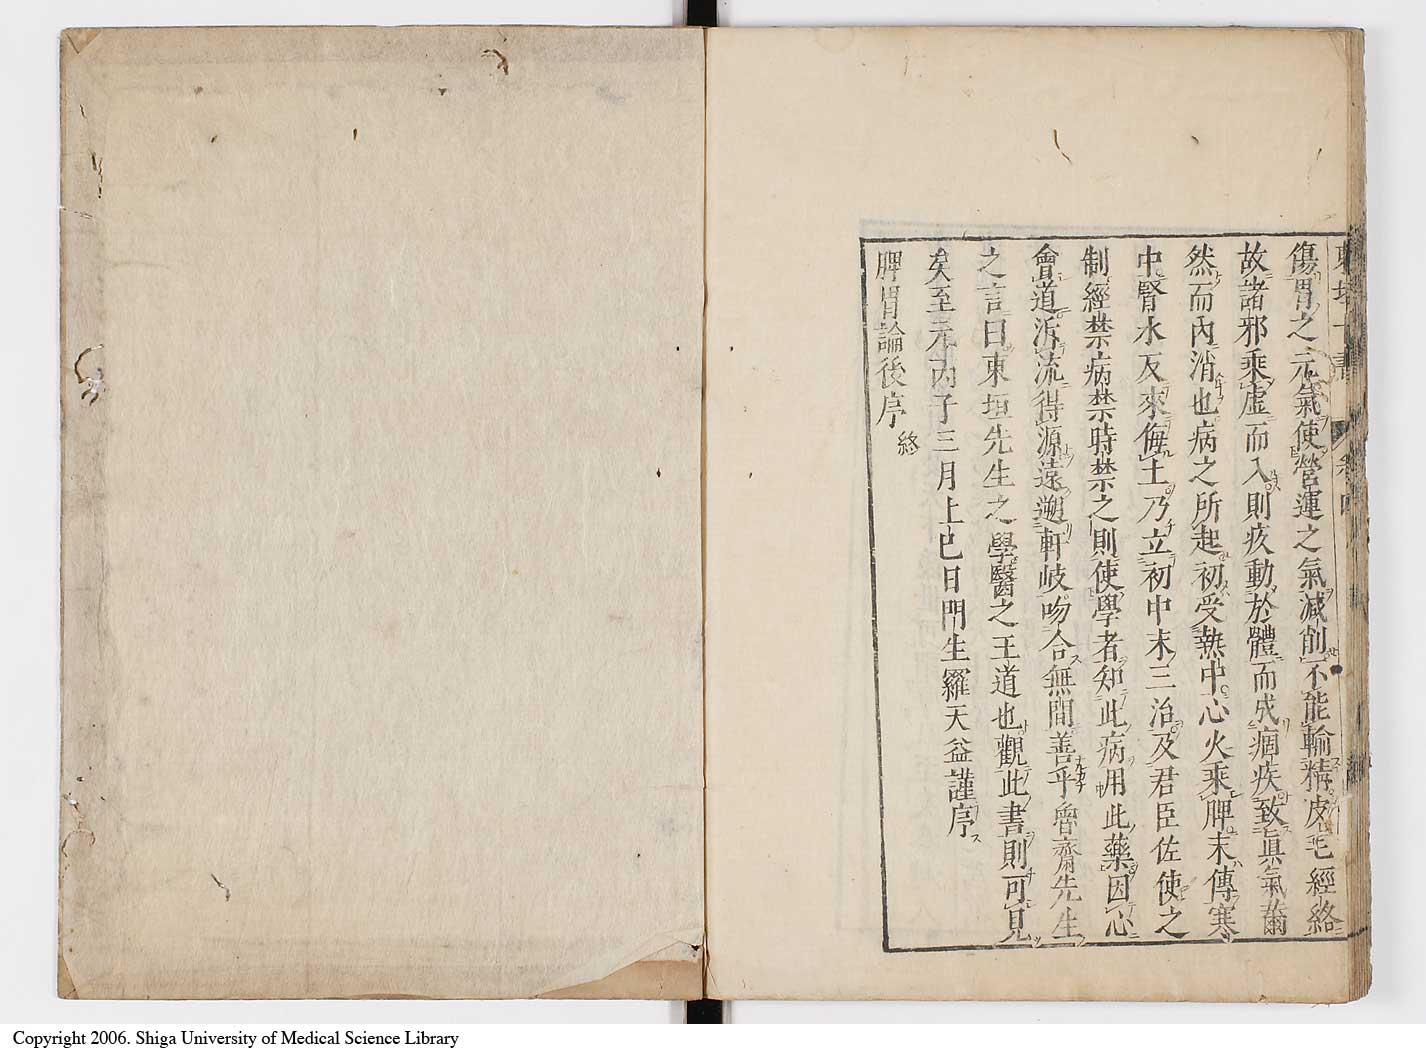 東垣十書 卷四
傷胃之元氣使營運之氣減削不能輸精皮毛經絡
故諸邪乘虛而入則疢動於體而成痼疾致眞氣薾
然而內消也病之所起初受熱中心火乘脾末傳寒
中腎水反來侮土乃立初中末三治及君臣佐使之
制經禁病禁時禁之則使學者知此病用此藥因心
會道泝流得源遠遡軒岐吻合無間善乎魯齋先生
之言曰東垣先生之學醫之王道也觀此書則可見
矣至元丙子三月上巳日門生羅天益謹序
脾胃論後序 終
Copyright 2006. Shiga University of Medical Science Library